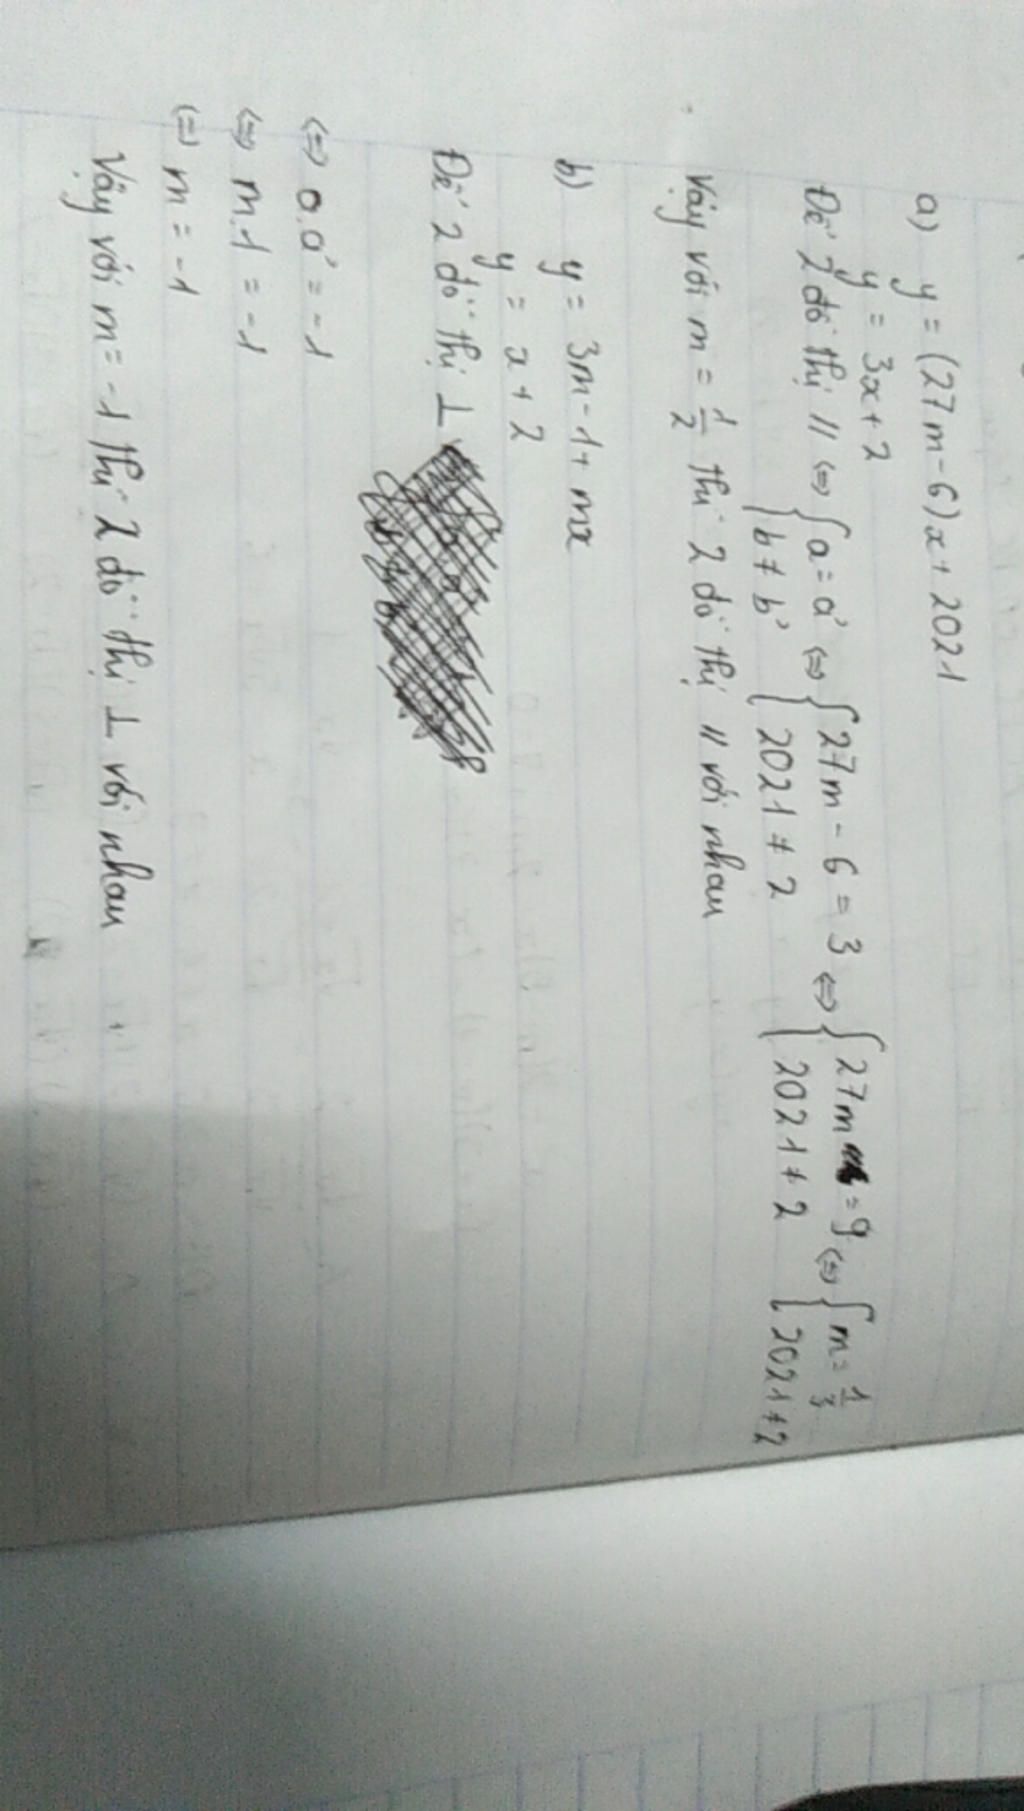 a) y = (27m - 6)x + 2021
y = 3x + 2
Để 2 đồ thị // ⇔ { a = a' ⇔ { 27m - 6 = 3 ⇔ { 27m = 9 ⇔ { m = 1/3
b ≠ b' { 2021 ≠ 2 { 2021 ≠ 2 { 2021 ≠ 2
Vậy với m = 1/2 thì 2 đồ thị // với nhau
b) y = 3m - 1 + mx
y = x + 2
Để 2 đồ thị ⊥
⇔ a.a' = -1
⇔ m.1 = -1
⇔ m = -1
Vậy với m = -1 thì 2 đồ thị ⊥ với nhau